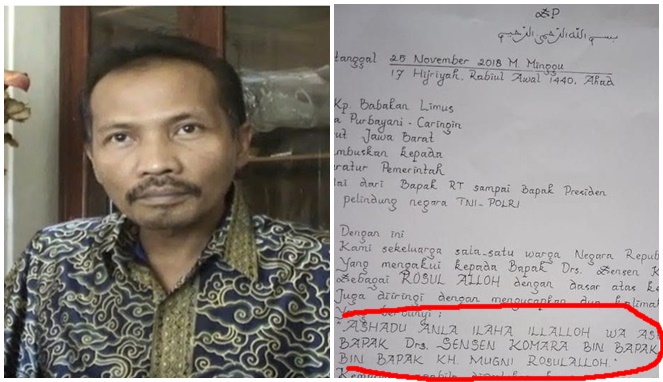 ZP
بسم الله الرحمن الرحيم
tanggal 25 November 2018 M. Minggu
17 Hijriyah, Rabiul Awal 1440, Ahad
Kp. Babakan Limus
a Purbayani - Caringin
ut Jawa Barat
mbuskan kepada
aratur Pemerintah
lai dari Bapak RT sampai Bapak Presiden
pelindung negara TNI-POLRI
Dengan ini
Kami sekeluarga sala-satu warga Negara Republ
Yang mengakui kepada Bapak Drs. Sensen K
Sebagai ROSUL ALLOH dengan dasar atas ke
Juga diiringi dengan mengucapkan dua kalimat
Yang berbunyi :
"ASHADU ANLA ILAHA ILLALLOH WA AS
BAPAK Drs. SENSEN KOMARA BIN BAPAK
BIN BAPAK KH. MUGNI ROSULALLOH."